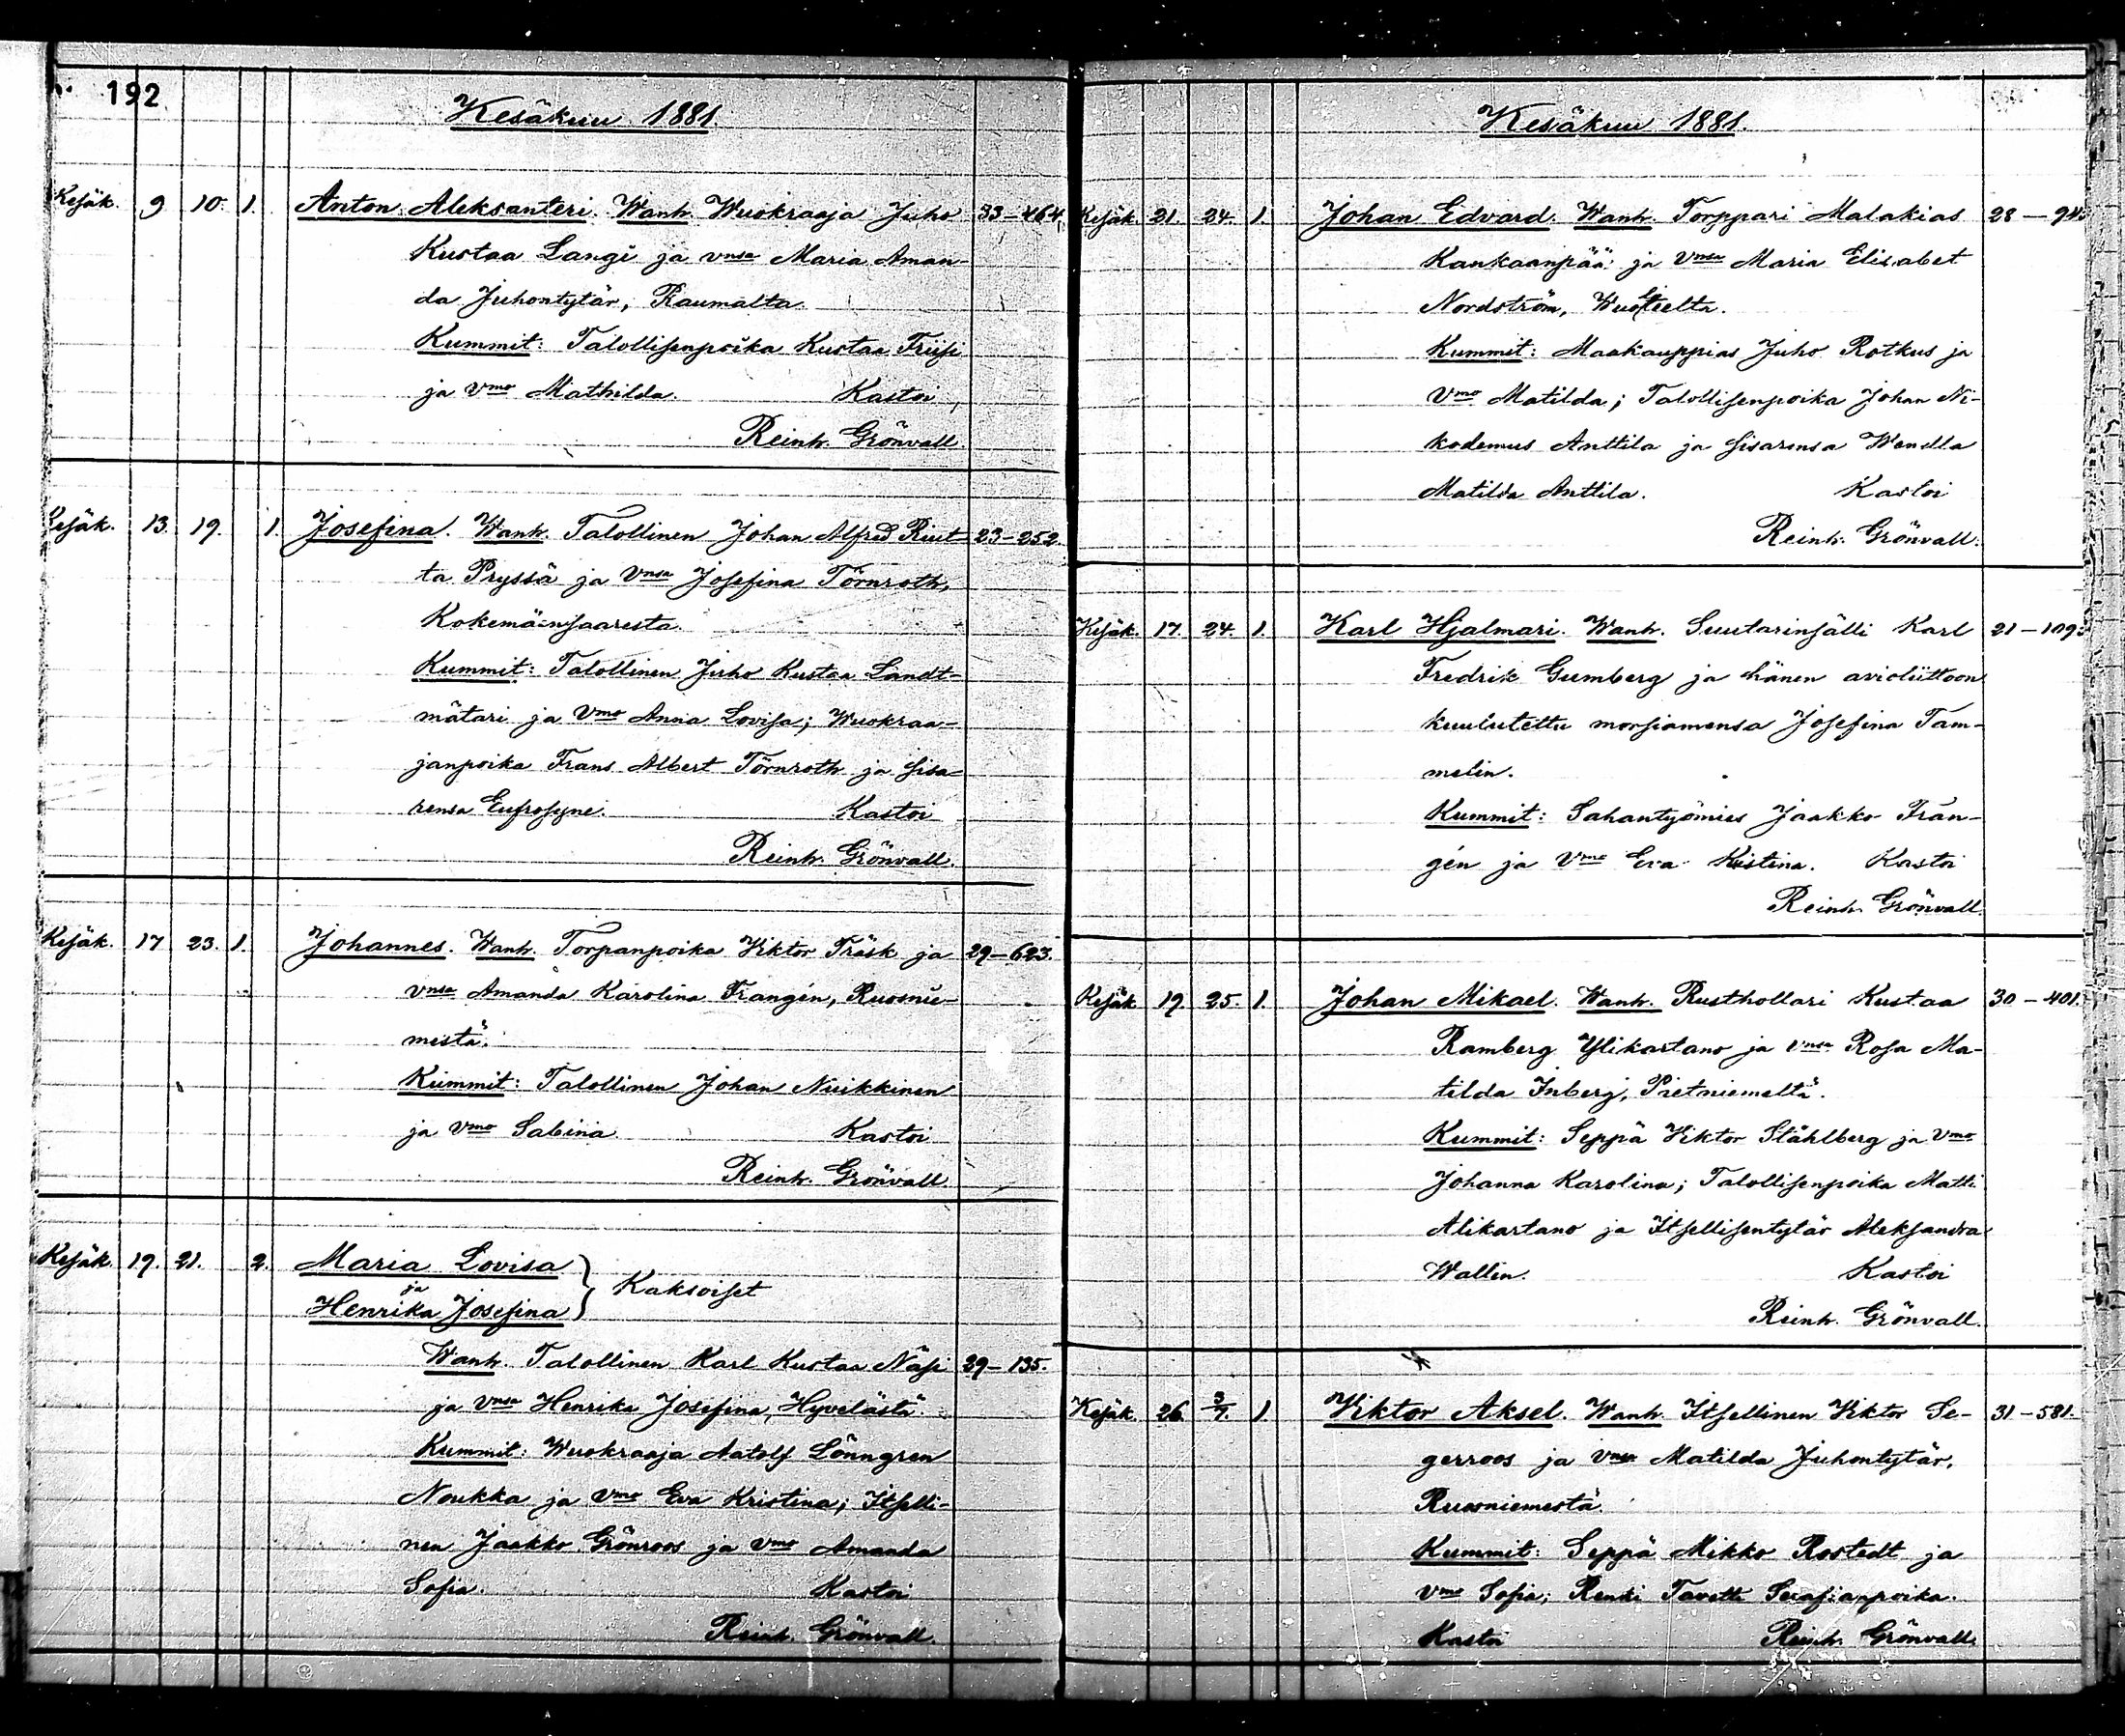 192
Kesäkuu 1881.
Kesäk. 9 10. 1. Anton Aleksanteri. Wanh. Wuokraaja Juho 33–464.
Kustaa Langi ja vnsa Maria Aman-
da Juhontytär, Raumalta.
Kummit: Talollisenpoika Kustaa Friisi
ja vmo Mathilda. Kastoi,
Reinh. Grönvall.
Kesäk. 13. 19. 1. Josefina. Wanh. Talollinen Johan Alfred Riut- 23–252.
ta Pryssä ja Vnsa Josefina Törnroth,
Kokemäinsaaresta.
Kummit: Talollinen Juho Kustaa Landt-
mätari ja Vmo Anna Lovisa; Wuokraa-
janpoika Frans Albert Törnroth ja sisa-
rensa Eufrosyne. Kastoi
Reinh. Grönvall.
Kesäk. 17 23. 1. Johannes. Wanh. Torpanpoika Viktor Träsk ja 29–623.
vnsa Amanda Karolina Frangén, Ruosnie-
mestä.
Kummit: Talollinen Johan Nuikkinen
ja vmo Sabina. Kastoi
Reinh. Grönvall.
Kesäk. 19. 21. 2. Maria Lovisa
ja
Henrika Josefina } Kaksoiset
Wanh. Talollinen Karl Kustaa Näsi 29–135.
ja vnsa Henrika Josefina, Hyvelästä.
Kummit: Wuokraaja Aatolf Lönngren
Noukka ja vmo Eva Kristina; Itselli-
nen Jaakko Grönroos ja vmo Amanda
Sofia. Kastoi
Reinh. Grönvall.
Kesäkuu 1881.
Kesäk. 21. 24. 1. Johan Edvard. Wanh. Torppari Malakias 28–94.
Kankaanpää ja Vnsa Maria Elisabet
Nordström,
Kummit: Maakauppias Juho Rotkus ja
Vmo Matilda; Talollisenpoika Johan Ni-
kodemus Anttila ja sisarensa Wendla
Matilda Anttila. Kastoi
Reinh. Grönvall.
Kesäk. 17. 24. 1. Karl Hjalmari. Wanh. Suutarinsälli Karl 21–109.
Fredrik Gumberg ja hänen avioliittoon
kuulutettu morsiamensa Josefina Tam-
melin.
Kummit: Sahantyömies Jaakko Fran-
gén ja Vmo Eva Kristina. Kastoi
Reinh. Grönvall.
Kesäk. 19. 25. 1. Johan Mikael. Wanh. Rusthollari Kustaa 30–401.
Ramberg Ylikartano ja vnsa Rosa Ma-
tilda Inberg, Pietniemeltä.
Kummit: Seppä Viktor Ståhlberg ja Vmo
Johanna Karolina; Talollisenpoika Matti
Alikartano ja Itsellisentytär Aleksandra
Wallin. Kastoi
Reinh. Grönvall.
Kesäk. 26. 3/7. 1 Viktor Aksel. Wanh. Itsellinen Viktor Se- 31–581.
gerroos ja Vnsa Matilda Juhontytär,
Ruosniemestä.
Kummit: Seppä Mikko Rostedt ja
Vmo Sofia; Renki Tavetti Serafianpoika.
Kastoi Reinh. Grönvall.